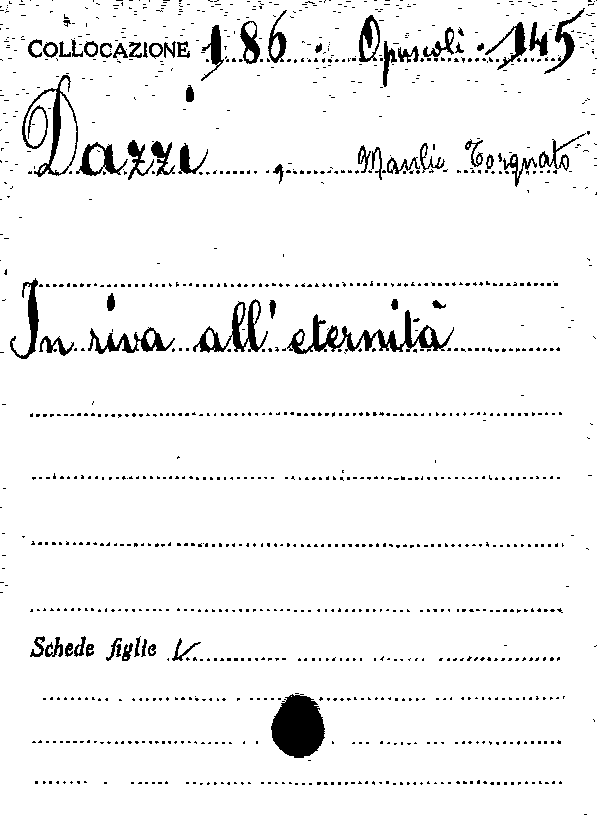 COLLOCAZIONE 186 · Opuscoli · 145
Dazzi , Manlio Torquato
In riva all'eternità
Schede figlie V